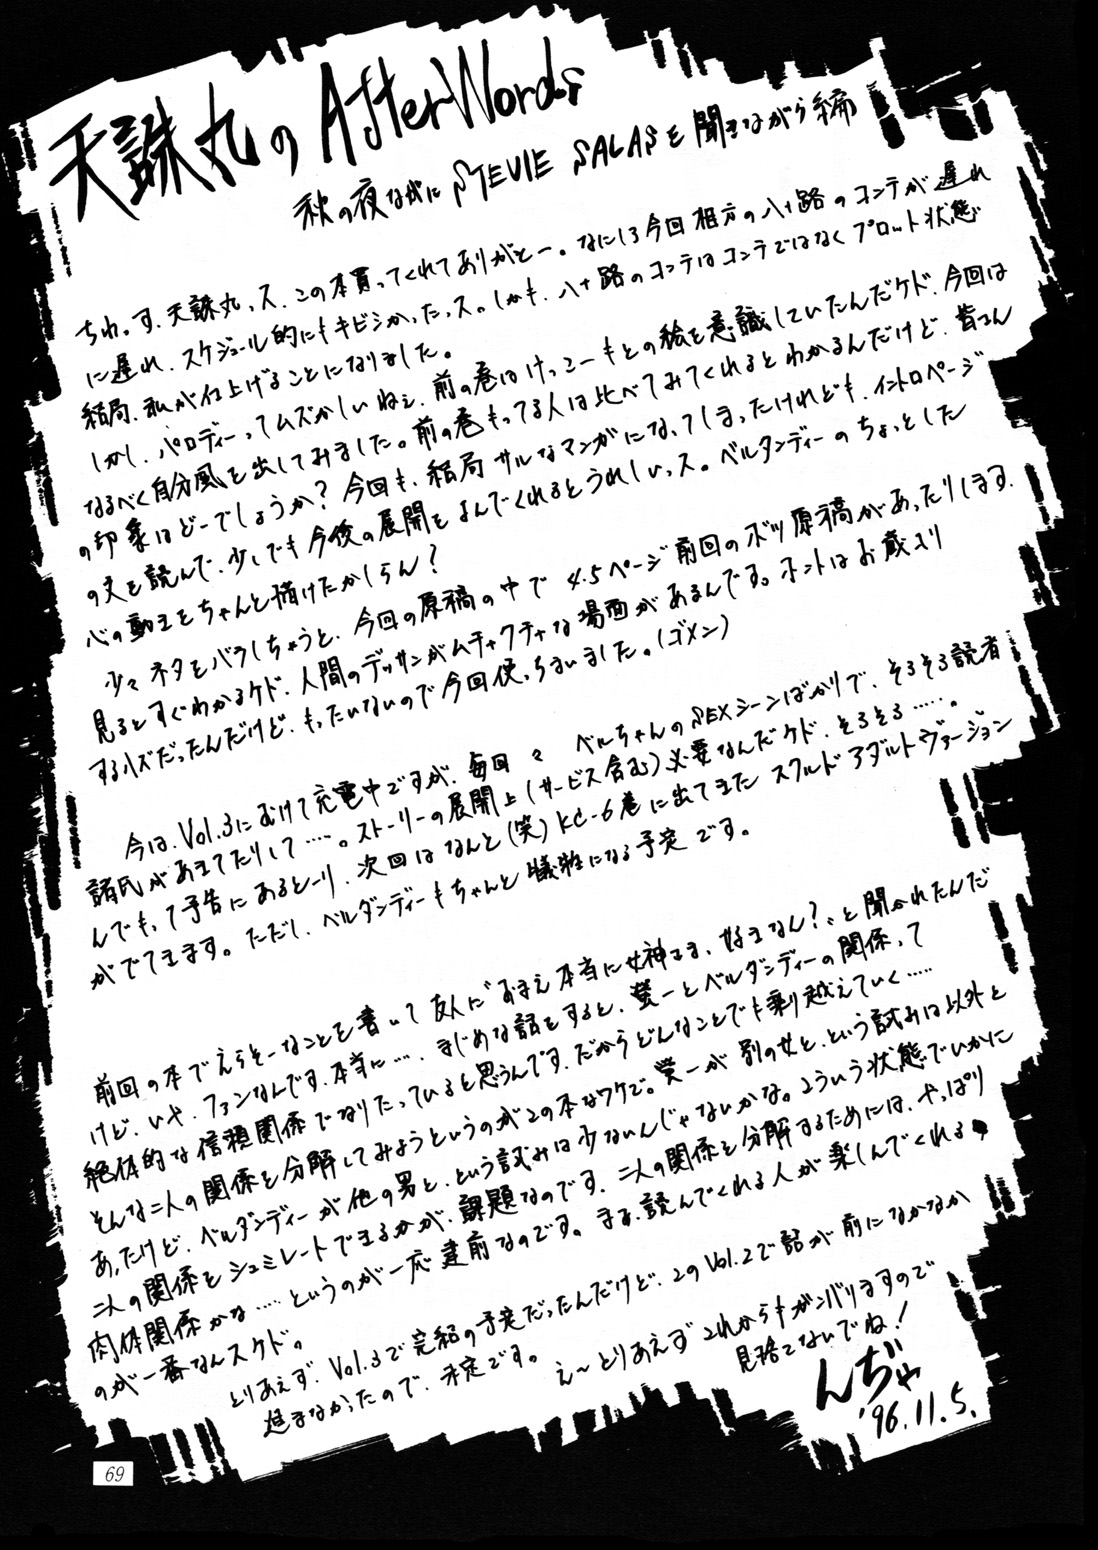 天誅丸の AfterWords
秋の夜ながに STEVIE SALASを聞きながら編
ちわっす、天誅丸っス、この本買ってくれてありがとー。なにしろ今回相方の八十路のコンテが遅れ
に遅れ、スケジュール的にもキビシかったっス。しかも、八十路のコンテはコンテではなくプロット状態
結局、私が仕上げることになりました。
しかし、パロディーってムズかしいねェ、前の巻はけっこーもとの絵を意識していたんだケド、今回は
なるべく自分風を出してみました。前の巻もってる人は比べてみてくれるとわかるんだけど、皆さん
の印象はどーでしょうか？今回も、結局サルなマンガになってしまったけれども、イントロページ
の文を読んで、少しでも今後の展開をよんでくれるとうれしいっス。ベルダンディーのちょっとした
心の動きをちゃんと描けたかしらん？
少々ネタをバラしちゃうと、今回の原稿の中で 4.5ページ前回のボツ原稿があったりします。
見るとすぐわかるケド、人間のデッサンがムチャクチャな場面があるんです。ホントはお蔵入り
するハズだったんだけど、もったいないので今回使っちまいました。（ゴメン）
今は、Vol.3にむけて充電中ですが、毎回々 ベルちゃんのSEXシーンばかりで、そろそろ読者
諸氏があきてたりして……。ストーリーの展開上（サービス含む）必要なんだケド、そろそろ……。
んでもって予告にあるとーり、次回はなんと（笑）KC-6巻に出てきた スクルドアダルトヴァージョン
がでてきます。ただし、ベルダンディーもちゃんと犠牲になる予定です。
前回の本でえらそーなことを書いて友人に〝おまえ本当に女神さま、好きなん？〟と聞かれたんだ
けど、いや、ファンなんです、本当に…、まじめな話をすると、螢一とベルダンディーの関係って
絶体的な信頼関係でなりたっていると思うんです、だからどんなことでも乗り越えていく……
そんな二人の関係を分解してみようというのがこの本なワケで。螢一が別の女と、という試みは以外と
あったけど、ベルダンディーが他の男と、という試みは少ないんじゃないかな。こういう状態でいかに
二人の関係をシュミレートできるかが、課題なのです、二人の関係を分解するためには、やっぱり
肉体関係かな……というのが一応建前なのです。まぁ、読んでくれる人が楽しんでくれる
のが一番なんスケド。
とりあえず、Vol.3で完結の予定だったんだけど、このVol.2で話が前になかなか
進まなかったので、未定です。
え〜とりあえずこれからもガンバリますので
見捨てないでね！
んぢゃ
'96.11.5.
69